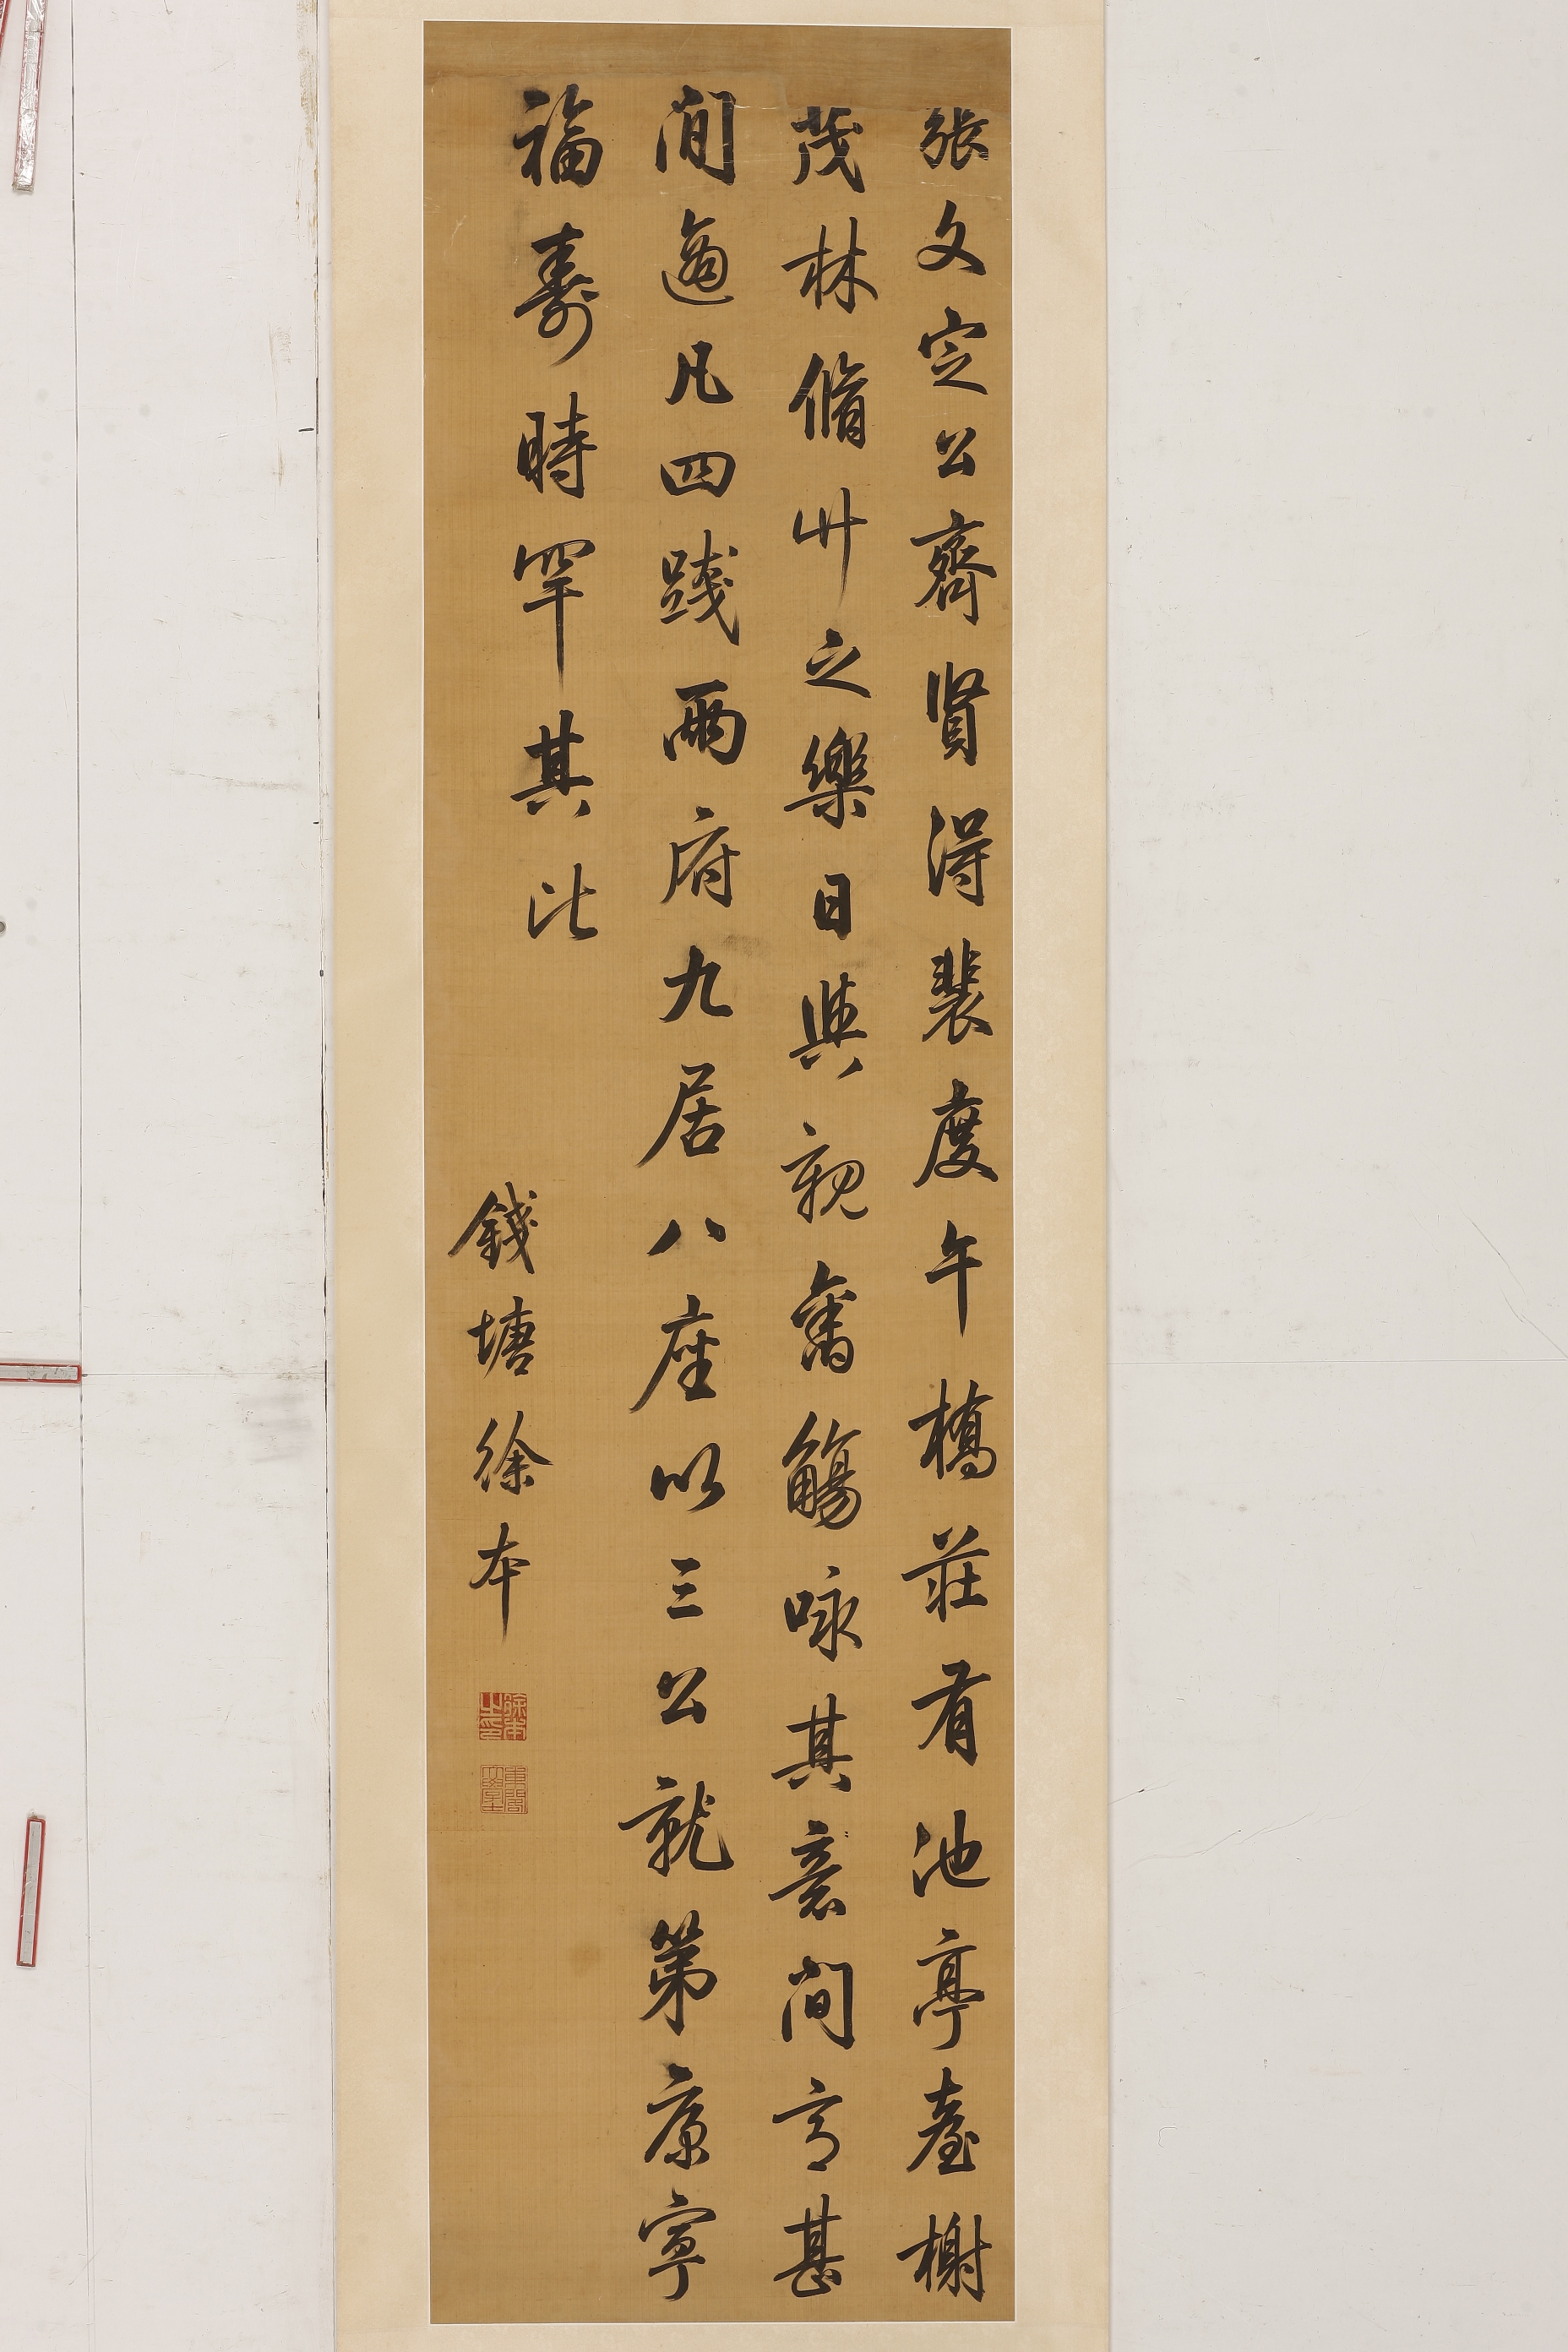 張文定公齊賢得裴度午橋莊有池亭臺榭
茂林脩竹之樂日與親舊觴咏其意閒
甚
閒適凡四踐兩府九居八座以三公就第康寧
福壽時罕其比
錢塘徐本
徐本之印